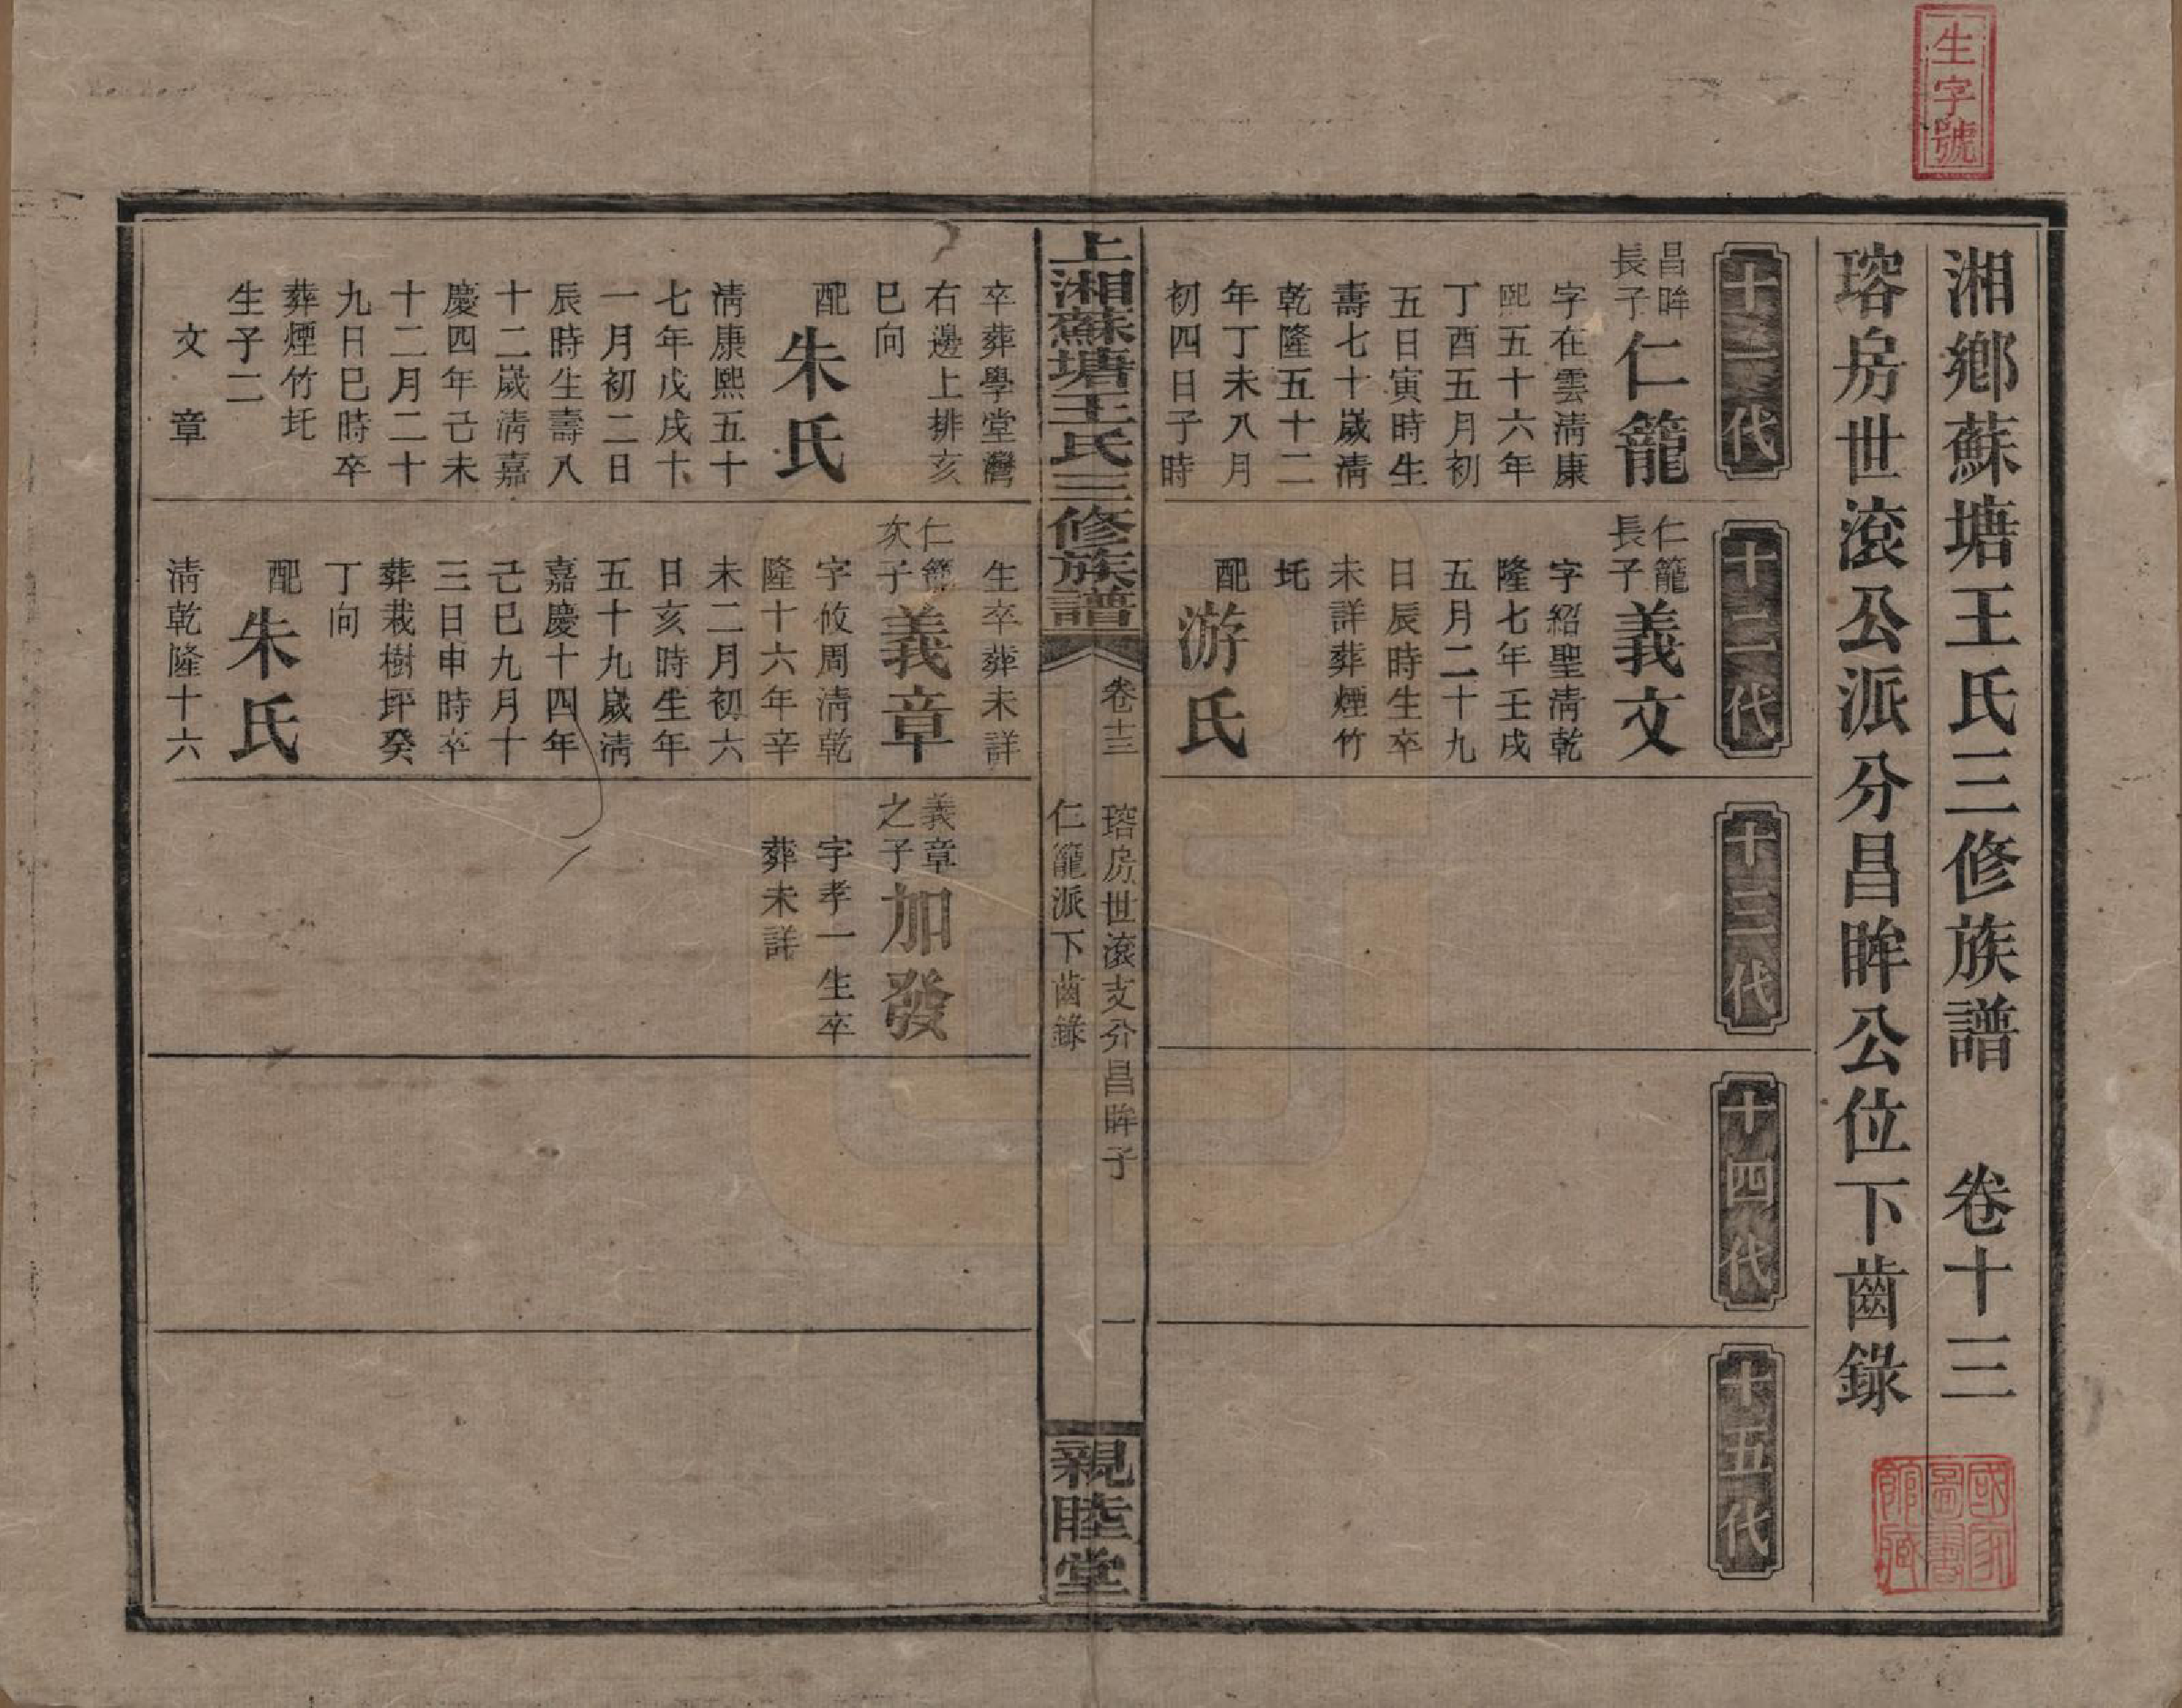 生字號
湘鄉蘇塘王氏三修族譜 卷十三
瑢房世滾公派分昌眸公位下齒錄
十一代
昌眸
長子
仁籠
字在雲淸康
熙五十六年
丁酉五月初
五日寅時生
壽七十歲淸
乾隆五十二
年丁未八月
初四日子時
十二代
仁籠
長子
義文
字紹聖淸乾
隆七年壬戌
五月二十九
日辰時生卒
未詳葬煙竹
圫
配
游氏
十三代
十四代
十五代
上湘蘇塘王氏三修族譜
卷十三
瑢房世滾支分昌眸子
仁籠派下齒錄
一
親睦堂
卒葬學堂灣
右邊上排亥
巳向
配
朱氏
淸康熙五十
七年戊戌十
一月初二日
辰時生壽八
十二歲淸嘉
慶四年己未
十二月二十
九日巳時卒
葬煙竹圫
生子二
文 章
生卒葬未詳
仁籠
次子
義章
字攸周淸乾
隆十六年辛
未二月初六
日亥時生年
五十九歲淸
嘉慶十四年
己巳九月十
三日申時卒
葬栽樹坪癸
丁向
配
朱氏
淸乾隆十六
義章
之子
加發
字孝一生卒
葬未詳
國家
圖書
館藏